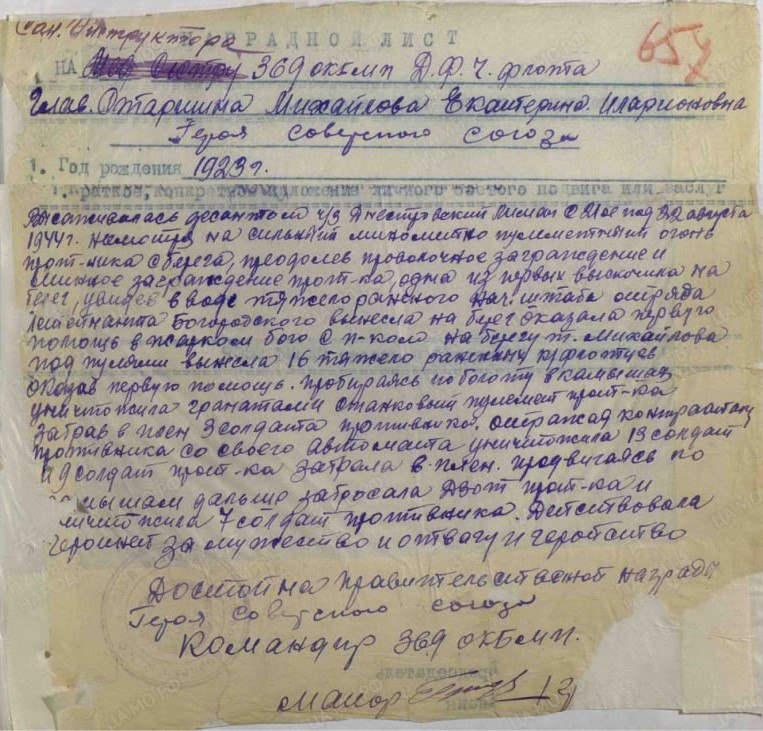 Сан. Инструктора
НАГРАДНОЙ ЛИСТ
657
НА 369 ОКБМП Д.Ф.Ч. флота
Глав. Старшина Михайлова Екатерина Иларионовна
Героя Советского союза
1. Год рождения 1923 г.
1. Краткое, конкретное изложение личного боевого подвига или заслуг
Высаживалась десантом ч/з Днестровский Лиман с 21 ое под 22 августа
1944 г. несмотря на сильный минометно пулеметный огонь
прот-ника с берега, преодолев проволочное заграждение и
минное заграждение прот-ка, одна из первых выскочила на
берег, увидев в воде тяжелораненого нач. штаба отряда
лейтенанта Богородского вынесла на берег оказала первую
помощь в жарком бою с п-ком на берегу т. Михайлова
под пулями вынесла 16 тяжело раненых кр/флотцев
оказав первую помощь. Пробираясь по болоту в камышах
уничтожила гранатами станковый пулемет прот-ка
забрав в плен 3 солдата противника. отражая контратаку
противника со своего автомата уничтожила 13 солдат
и 9 солдат прот-ка забрала в плен. продвигаясь по
камышам дальше забросала Дзот прот-ка и
уничтожила 7 солдат противника. Действовала
героиней за мужество и отвагу и геройство
Достойна правительственной награды
Героя Советского союза
Командир 369 ОКБМП.
Председатель
майор